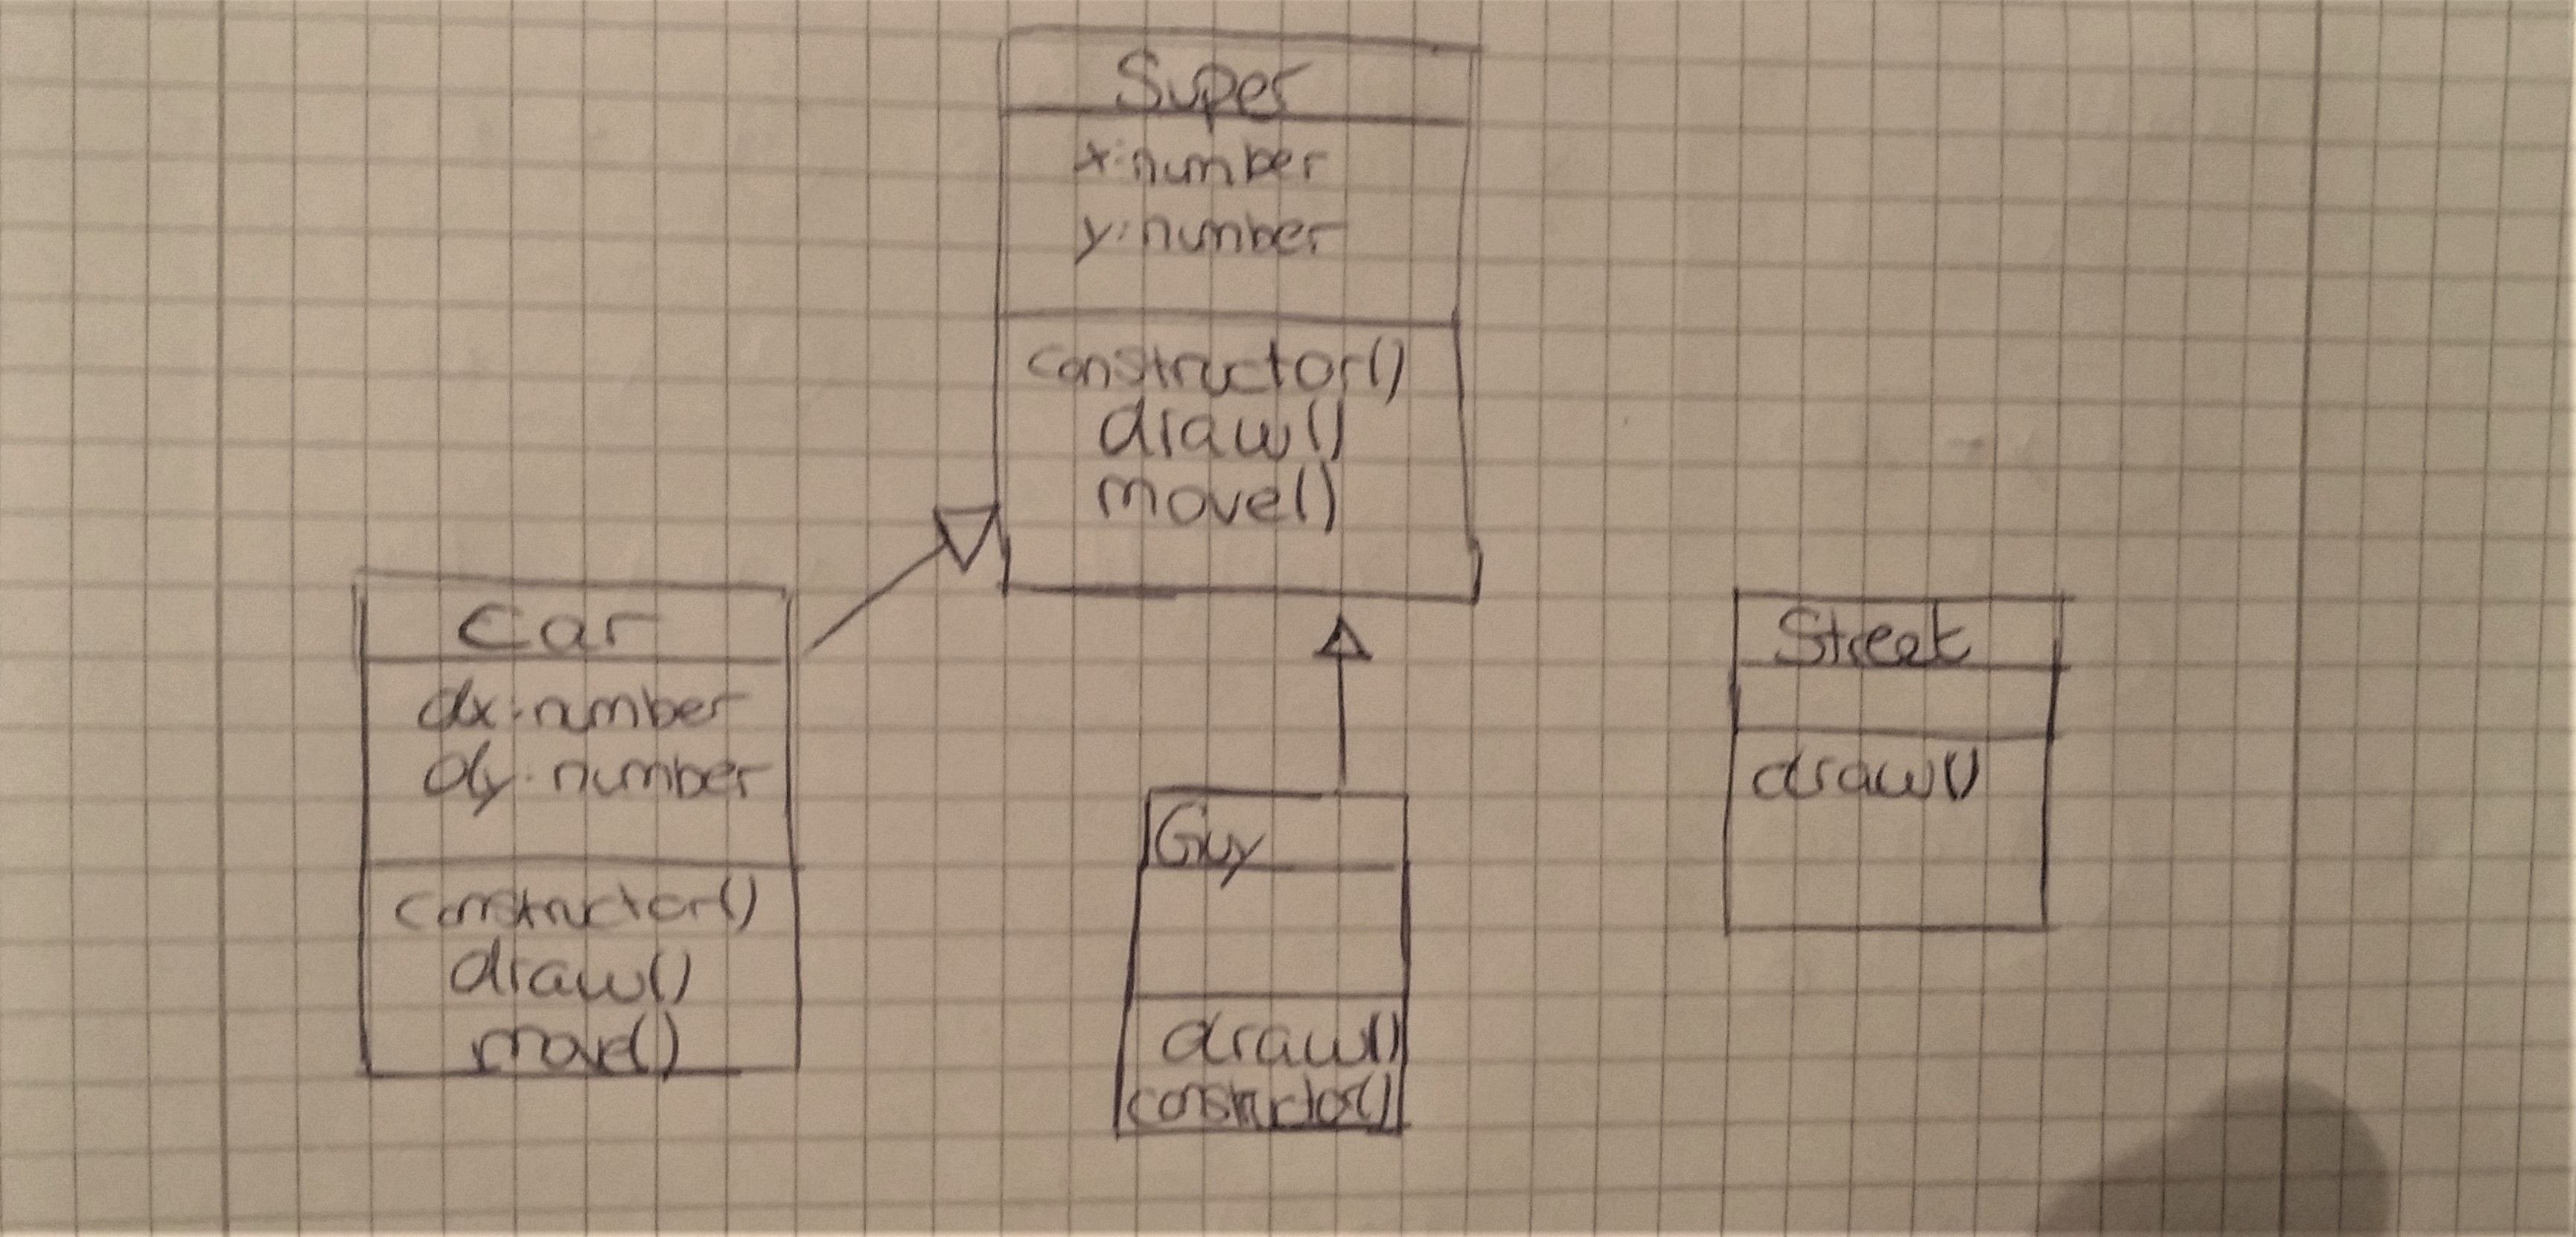 Super
x:number
y:number
constructor()
draw()
move()
Car
dx:number
dy:number
constructor()
draw()
move()
Guy
draw()
constructor()
Street
draw()